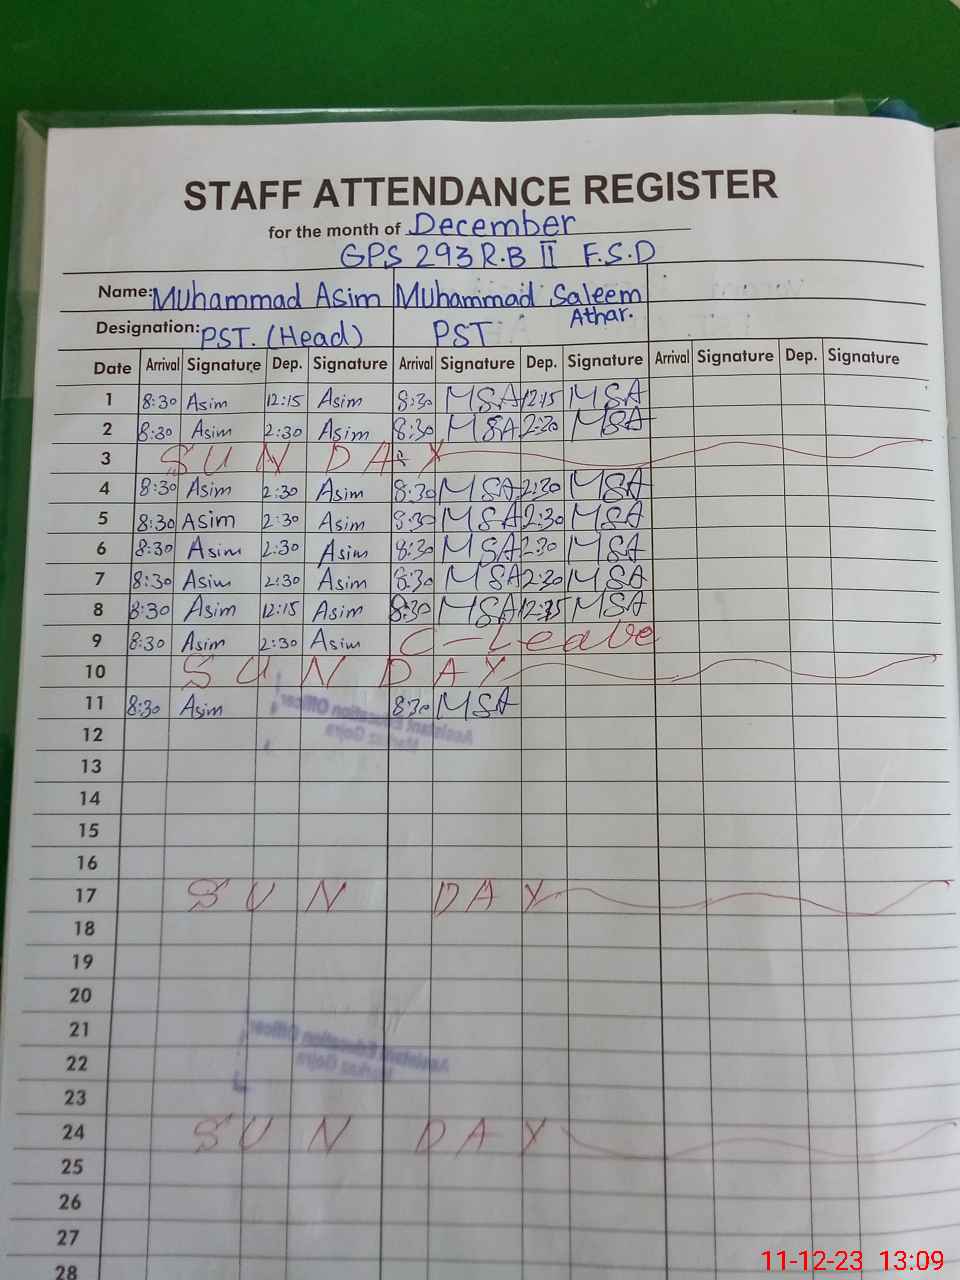 STAFF ATTENDANCE REGISTER
for the month of December
GPS 293 R.B II F.S.D
Name: Muhammad Asim Muhammad Saleem Athar.
Designation: PST. (Head) PST
Date Arrival Signature Dep. Signature Arrival Signature Dep. Signature Arrival Signature Dep. Signature
1 8:30 Asim 12:15 Asim 8:30 MSA 12:15 MSA
2 8:30 Asim 2:30 Asim 8:30 MSA 2:30 MSA
3 SUNDAY
4 8:30 Asim 2:30 Asim 8:30 MSA 2:30 MSA
5 8:30 Asim 2:30 Asim 8:30 MSA 2:30 MSA
6 8:30 Asim 2:30 Asim 8:30 MSA 2:30 MSA
7 8:30 Asim 2:30 Asim 8:30 MSA 2:30 MSA
8 8:30 Asim 12:15 Asim 8:30 MSA 12:15 MSA
9 8:30 Asim 2:30 Asim C-Leave
10 SUNDAY
11 8:30 Asim 8:30 MSA
Assistant Education Officer
Markaz Gojra
12
13
14
15
16
17 SUNDAY
18
19
20
21
Assistant Education Officer
Markaz Gojra
22
23
24 SUNDAY
25
26
27
28
11-12-23 13:09